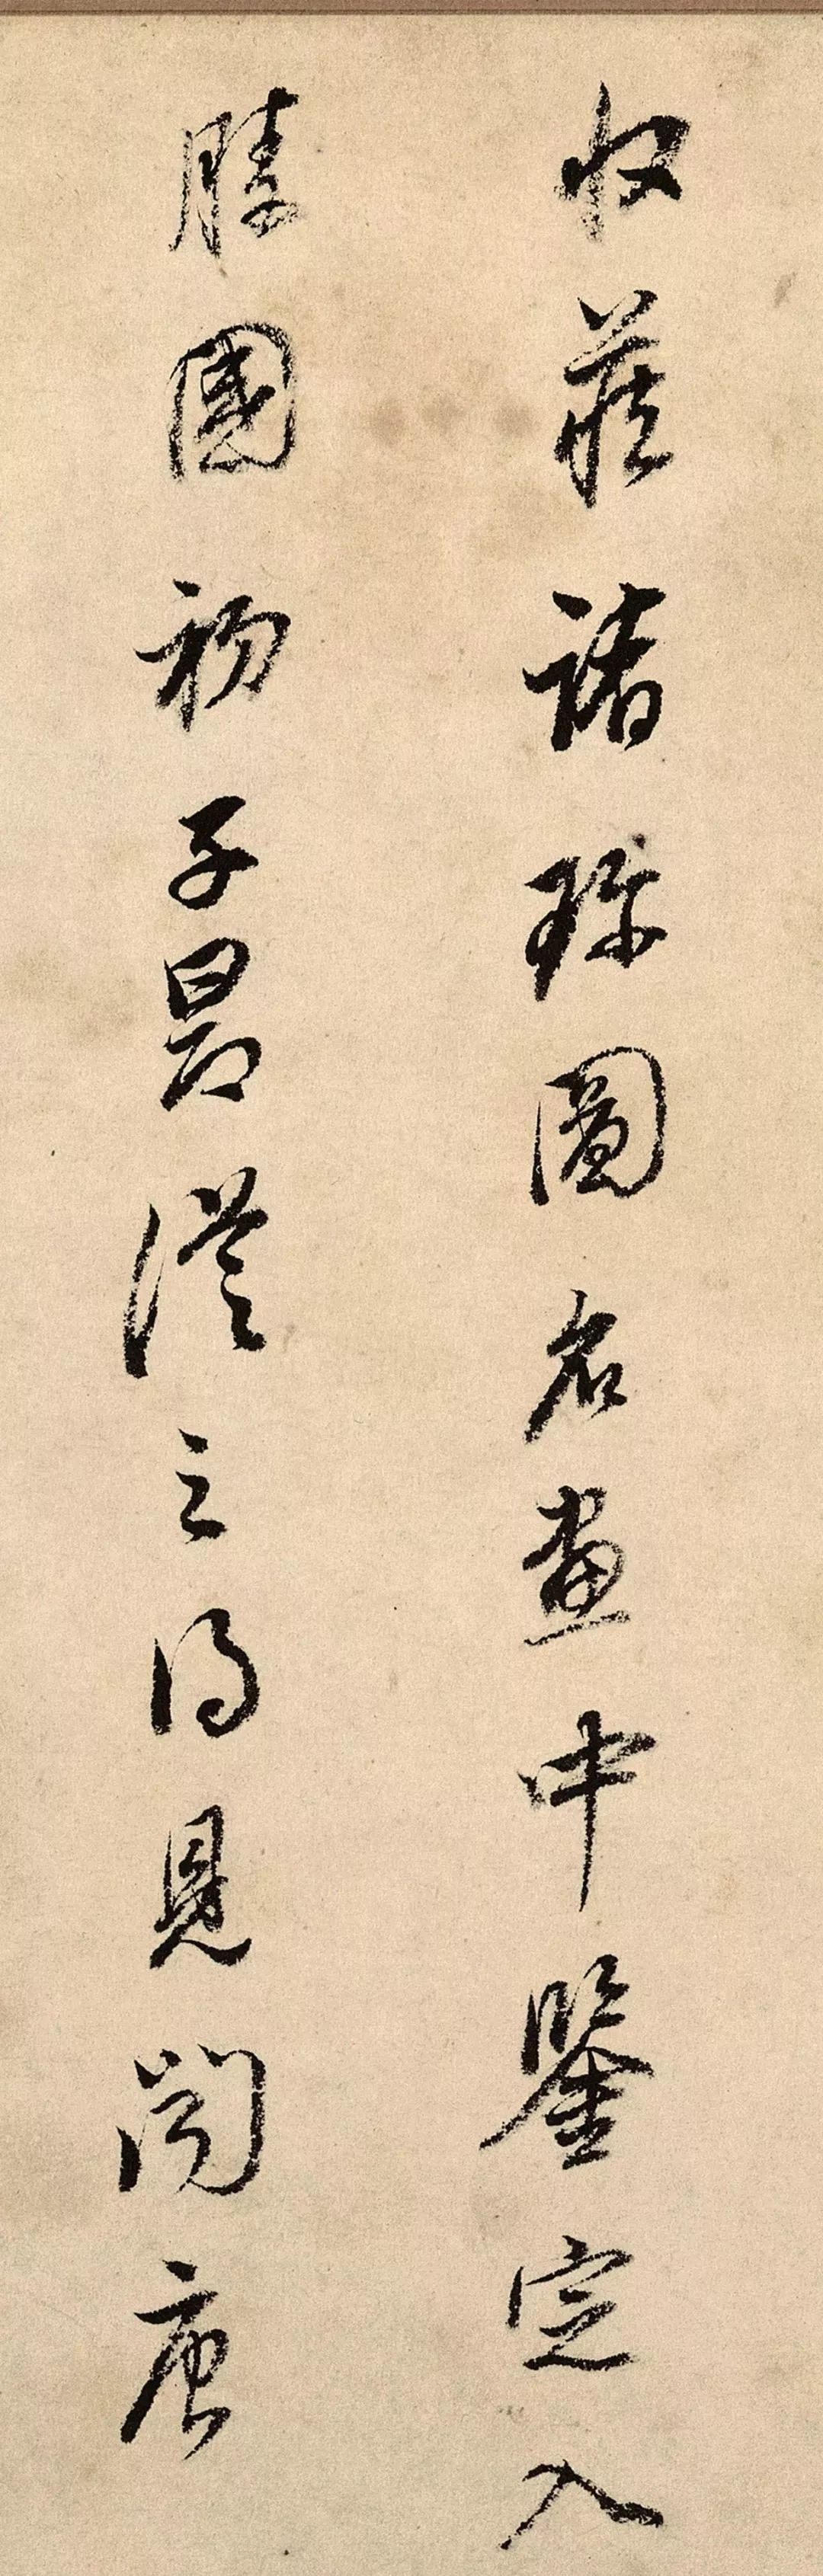 收藏諸珍圖名畫中鑒定入
勝國初子昂從之得見聞唐